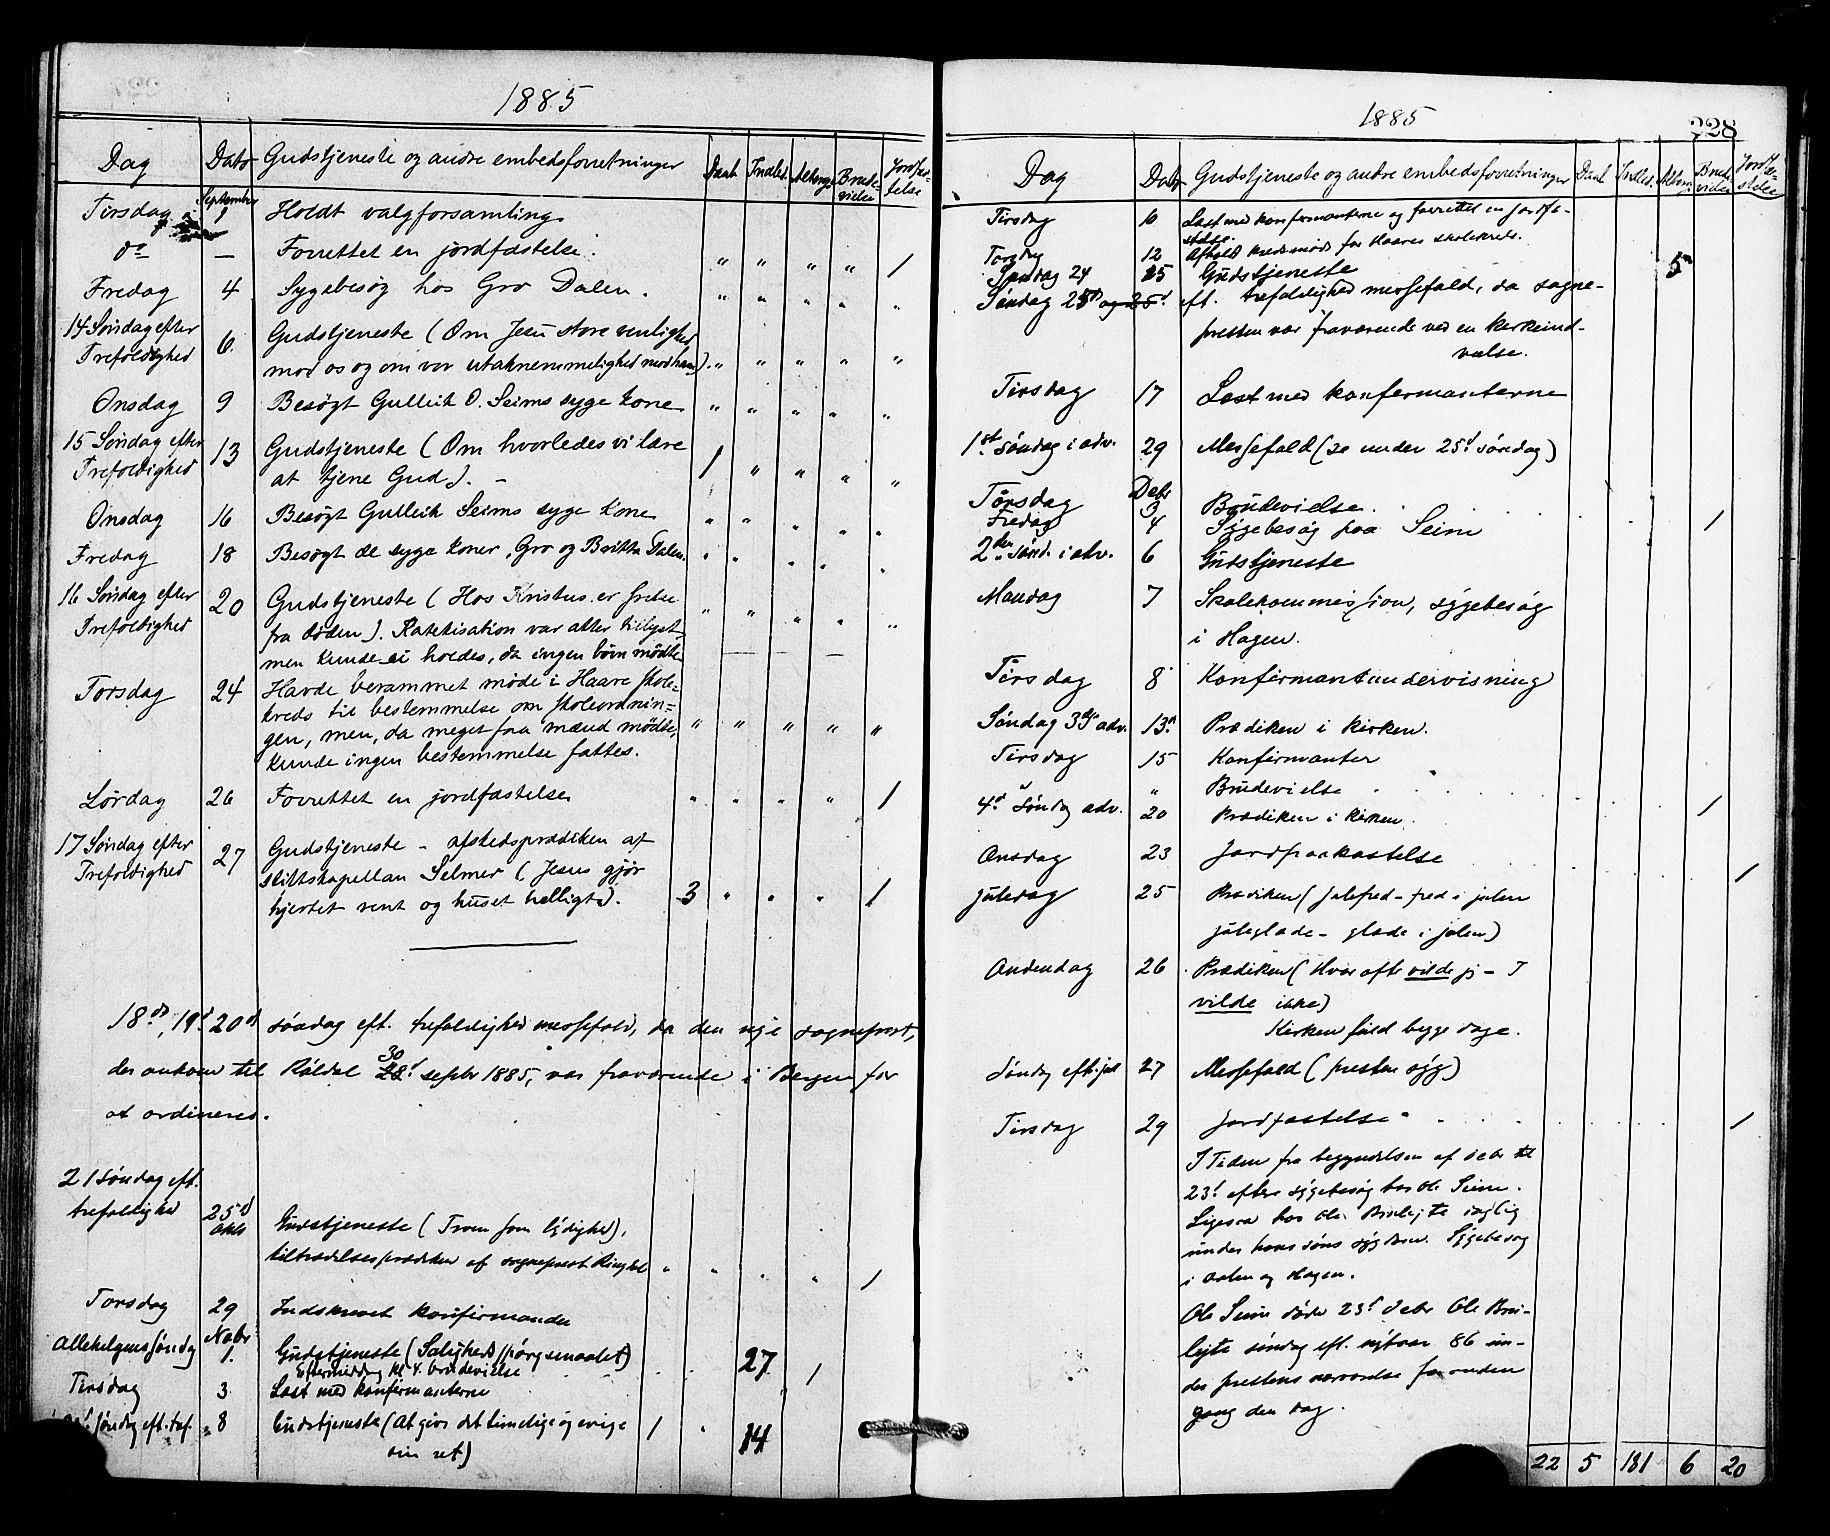 1885
Dag Dato Gudstjeneste og andre embedsforretninger Daab Indled. Alterg. Brude-
vielse Jordfæs-
telse
Tirsdag September 1 Holdt valgforsamling.
do — Forrettet en jordfæstelse. " " " " 1
Fredag 4 Sygebesøg hos Gro Dalen. " " " " "
14 Søndag efter
Trefoldighed 6. Gudstjeneste (Om Jesu store venlighed
mod os og om vor utaknemmelighed mod ham). " " " " "
Onsdag 9 Besøgt Gulleik O. Seims syge kone " " " " "
15 Søndag efter
Trefoldighed 13 Gudstjeneste (Om hvorledes vi lære
at tjene Gud). – 1 " " " "
Onsdag 16 Besøgt Gulleik Seims syge kone " " " " "
Fredag 18 Besøgt de syge koner, Gro og Britta Dalen. " " " " "
16 Søndag efter
Trefoldighed 20 Gudstjeneste (Hos Kristus er frelse
fra døden). Katekisation var atter tillyst
men kunde ei holdes, da ingen børn mødte " " " " "
Torsdag 24 Havde berammet møde i Haare skole-
kreds til bestemmelse om skoleordnin-
gen, men, da meget faa mænd mødte, " " " " "
kunde ingen bestemmelse fattes.
Lørdag 26 Forrettet en jordfæstelse " " " " 1
17 Søndag efter
Trefoldighed 27 Gudstjeneste – afskedsprædiken af
stiftskapellan Selmer (Jesus gjør
hjertet rent og huset helligt). 3 " " " 1
18de, 19d 20de søndag eft. trefoldighed messefald, da den nye sogneprest,
der ankom til Røldal 30 septbr 1885, var fraværende i Bergen for
at ordineres.
21 søndag eft.
trefoldighed 25d
Okto Gudstjeneste (Troen som lydighed),
tiltrædelsesprædiken af sogneprest " " " " 1
Torsdag 29 Indskrevet konfirmander
Allehelgens søndag Nobr
1. Gudstjeneste (Saligheds spørgsmaalet) 27
Eftermiddag kl 4. brudevielse 1
Tirsdag 3 Læst med konfirmanterne
søndag eft. tref. 8 Gudstjeneste (At give det timelige og evige 1 " 14
sin ret)
1885
228
Dag Dato Gudstjeneste og andre embedsforretninger Daab Indled. Alterg. Brude-
vielse Jordfæ-
stelse
Tirsdag 10 Læst med konfirmanterne og forrettet en jordfæ-
stelse.
Torsdag 12 Afholdt kredsmøde for Haares skolekreds.
Søndag 24 15 Gudstjeneste 5
Søndag 25d eft. trefoldighed messefald, da sogne-
presten var fraværende ved en kirkeind-
vielse.
Tirsdag 17 Læst med konfirmanterne
1st søndag i adv. 29 Messefald (se under 25d søndag)
Torsdag Debr
3 Brudevielse. 1
Fredag 4 Sygebesøg paa Seim
2den sønd. i adv. 6 Gudstjeneste
Mandag 7 Skolekommission, sygebesøg
i Hagen.
Tirsdag 8 Konfirmantundervisning
Søndag 3die adv. 13. Prædiken i kirken.
Tirsdag 15 Konfirmanter
" Brudevielse 1
4d Søndag adv. 20 Prædiken i kirken.
Onsdag 23 Jordpaakastelse 1
juledag 25 Prædiken (julefred – fred i julen
juleglæde – glæde i julen)
Andendag 26 Prædiken (Hvor ofte vilde jeg – I
vilde ikke)
Kirken fuld begge dage.
Søndag eft. jul 27 Messefald (presten syg)
Tirsdag 29 Jordfæstelse 1
I Tiden fra begyndelsen af debr til
23d oftere sygebesøg hos Ole Seim.
Ligesaa hos Ole daglig
under hans søns sygdom. Sygebesøg
i Dalen og Hagen.
Ole Seim døde 23d debr Ole
søndag eft. nytaar 86 un-
der prestens nærværelse for anden
gang den dag.
22 5 181 6 20